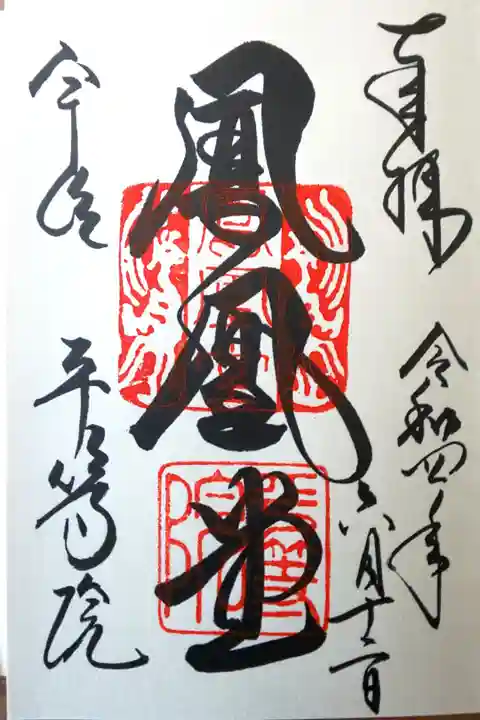 奉拝
令和四年
六月十二日
鳳凰堂
平等院
宇治
平等院